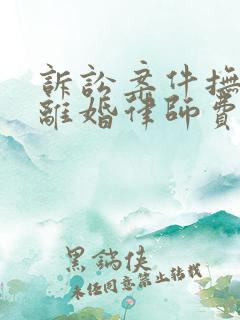 訴訟案件撫
離婚律師費
黑鍋俠
未经同意禁止转载